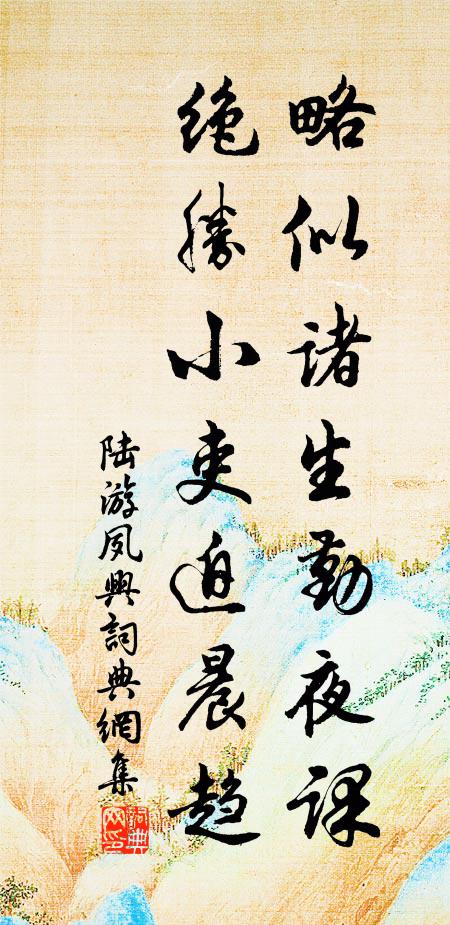 略似诸生勤夜课
绝胜小吏迫晨趋
陆游夙興詞典網集
詞典
网印